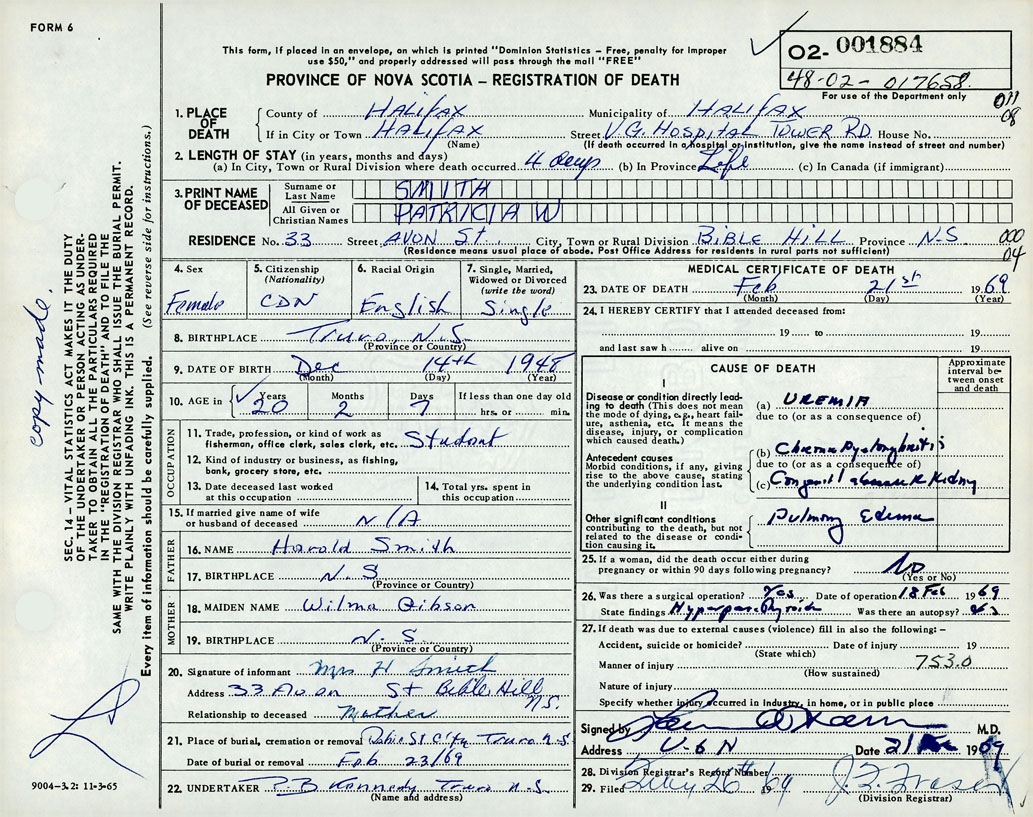 FORM 6
This form, if placed in an envelope, on which is printed "Dominion Statistics – Free, penalty for improper
use $50," and properly addressed will pass through the mail "FREE"
PROVINCE OF NOVA SCOTIA – REGISTRATION OF DEATH
O2- 001884
48-02- 017658
For use of the Department only
011
08
1. PLACE OF DEATH
County of HALIFAX Municipality of HALIFAX
If in City or Town HALIFAX Street V.G. HOSPITAL TOWER RD. House No.
(Name) (If death occurred in a hospital or institution, give the name instead of street and number)
2. LENGTH OF STAY (in years, months and days)
(a) In City, Town or Rural Division where death occurred 4 days (b) In Province Life (c) In Canada (if immigrant)
3. PRINT NAME OF DECEASED
Surname or Last Name SMITH
All Given or Christian Names PATRICIA W
RESIDENCE No. 33 Street AVON St. City, Town or Rural Division BIBLE HILL Province N.S
000
04
(Residence means usual place of abode. Post Office Address for residents in rural parts not sufficient)
4. Sex Female
5. Citizenship (Nationality) CDN
6. Racial Origin English
7. Single, Married, Widowed or Divorced (write the word) Single
8. BIRTHPLACE Truro, N.S.
(Province or Country)
9. DATE OF BIRTH Dec 14th 1948
(Month) (Day) (Year)
10. AGE in Years 20 Months 2 Days 7 If less than one day old hrs. or min.
OCCUPATION
11. Trade, profession, or kind of work as fisherman, office clerk, sales clerk, etc. Student
12. Kind of industry or business, as fishing, bank, grocery store, etc.
13. Date deceased last worked at this occupation
14. Total yrs. spent in this occupation
15. If married give name of wife or husband of deceased N/A
FATHER
16. NAME Harold Smith
17. BIRTHPLACE N.S
(Province or Country)
MOTHER
18. MAIDEN NAME Wilma Gibson
19. BIRTHPLACE N.S.
(Province or Country)
20. Signature of informant Mrs H Smith
Address 33 Avon St Bible Hill N.S.
Relationship to deceased Mother
21. Place of burial, cremation or removal City Truro N.S.
Date of burial or removal Feb 23/69
22. UNDERTAKER Kennedy Truro N.S.
(Name and address)
MEDICAL CERTIFICATE OF DEATH
23. DATE OF DEATH Feb 21st 1969
(Month) (Day) (Year)
24. I HEREBY CERTIFY that I attended deceased from:
19 to 19
and last saw h alive on 19
CAUSE OF DEATH
Approximate interval between onset and death
I
Disease or condition directly leading to death (This does not mean the mode of dying, e.g., heart failure, asthenia, etc. It means the disease, injury, or complication which caused death.)
(a) UREMIA
due to (or as a consequence of)
Antecedent causes
Morbid conditions, if any, giving rise to the above cause, stating the underlying condition last.
(b)
due to (or as a consequence of)
(c) Kidney
II
Other significant conditions contributing to the death, but not related to the disease or condition causing it.
Pulmony Edema
25. If a woman, did the death occur either during pregnancy or within 90 days following pregnancy? No
(Yes or No)
26. Was there a surgical operation? Yes Date of operation 18 Feb 1969
State findings Was there an autopsy?
27. If death was due to external causes (violence) fill in also the following: –
Accident, suicide or homicide? Date of injury 19
(State which)
Manner of injury 753.0
(How sustained)
Nature of injury
Specify whether injury occurred in Industry, in home, or in public place
Signed by M.D.
Address V.G.H Date 21 1969
28. Division Registrar's Record Number
29. Filed 26th 1969 J. Fraser
(Division Registrar)
SEC. 14 – VITAL STATISTICS ACT MAKES IT THE DUTY
OF THE UNDERTAKER OR PERSON ACTING AS UNDER-
TAKER TO OBTAIN ALL THE PARTICULARS REQUIRED
IN THE "REGISTRATION OF DEATH" AND TO FILE THE
SAME WITH THE DIVISION REGISTRAR WHO SHALL ISSUE THE BURIAL PERMIT.
WRITE PLAINLY WITH UNFADING INK. THIS IS A PERMANENT RECORD.
Every item of information should be carefully supplied. (See reverse side for instructions.)
copy made.
9004–3.2: 11-3-65